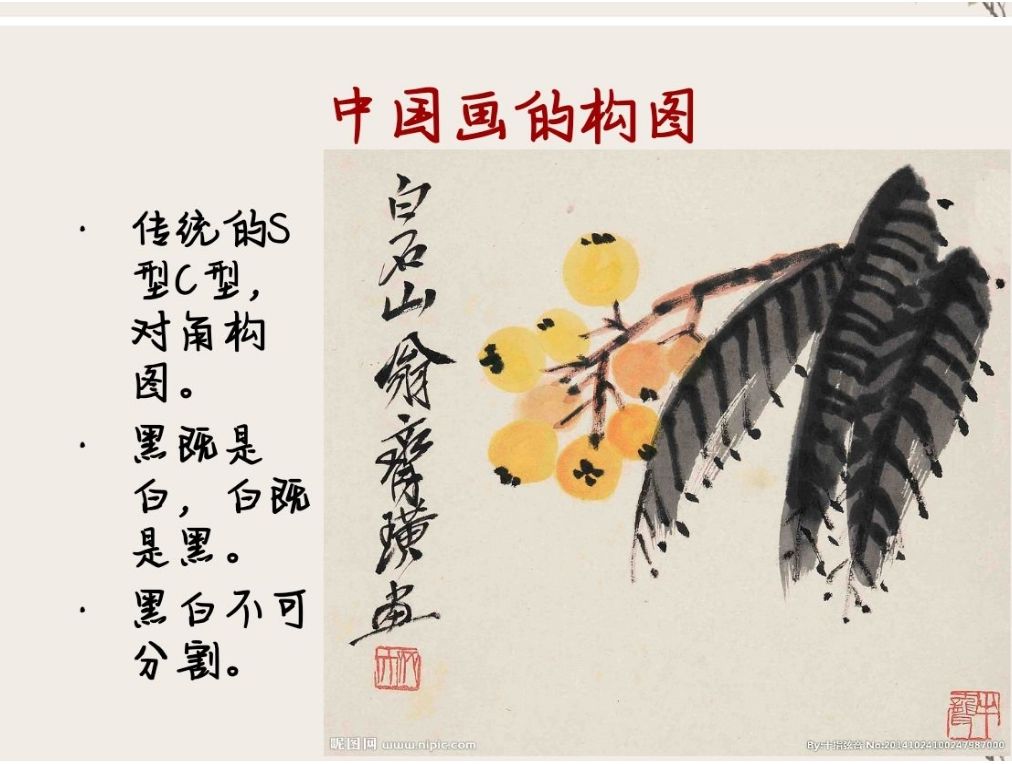 中国画的构图
· 传统的S
型C型，
对角构
图。
· 黑既是
白，白既
是黑。
· 黑白不可
分割。
白石山翁齊璜画
昵图网 www.nipic.com
By:十指弦音 No:20141024100247987000